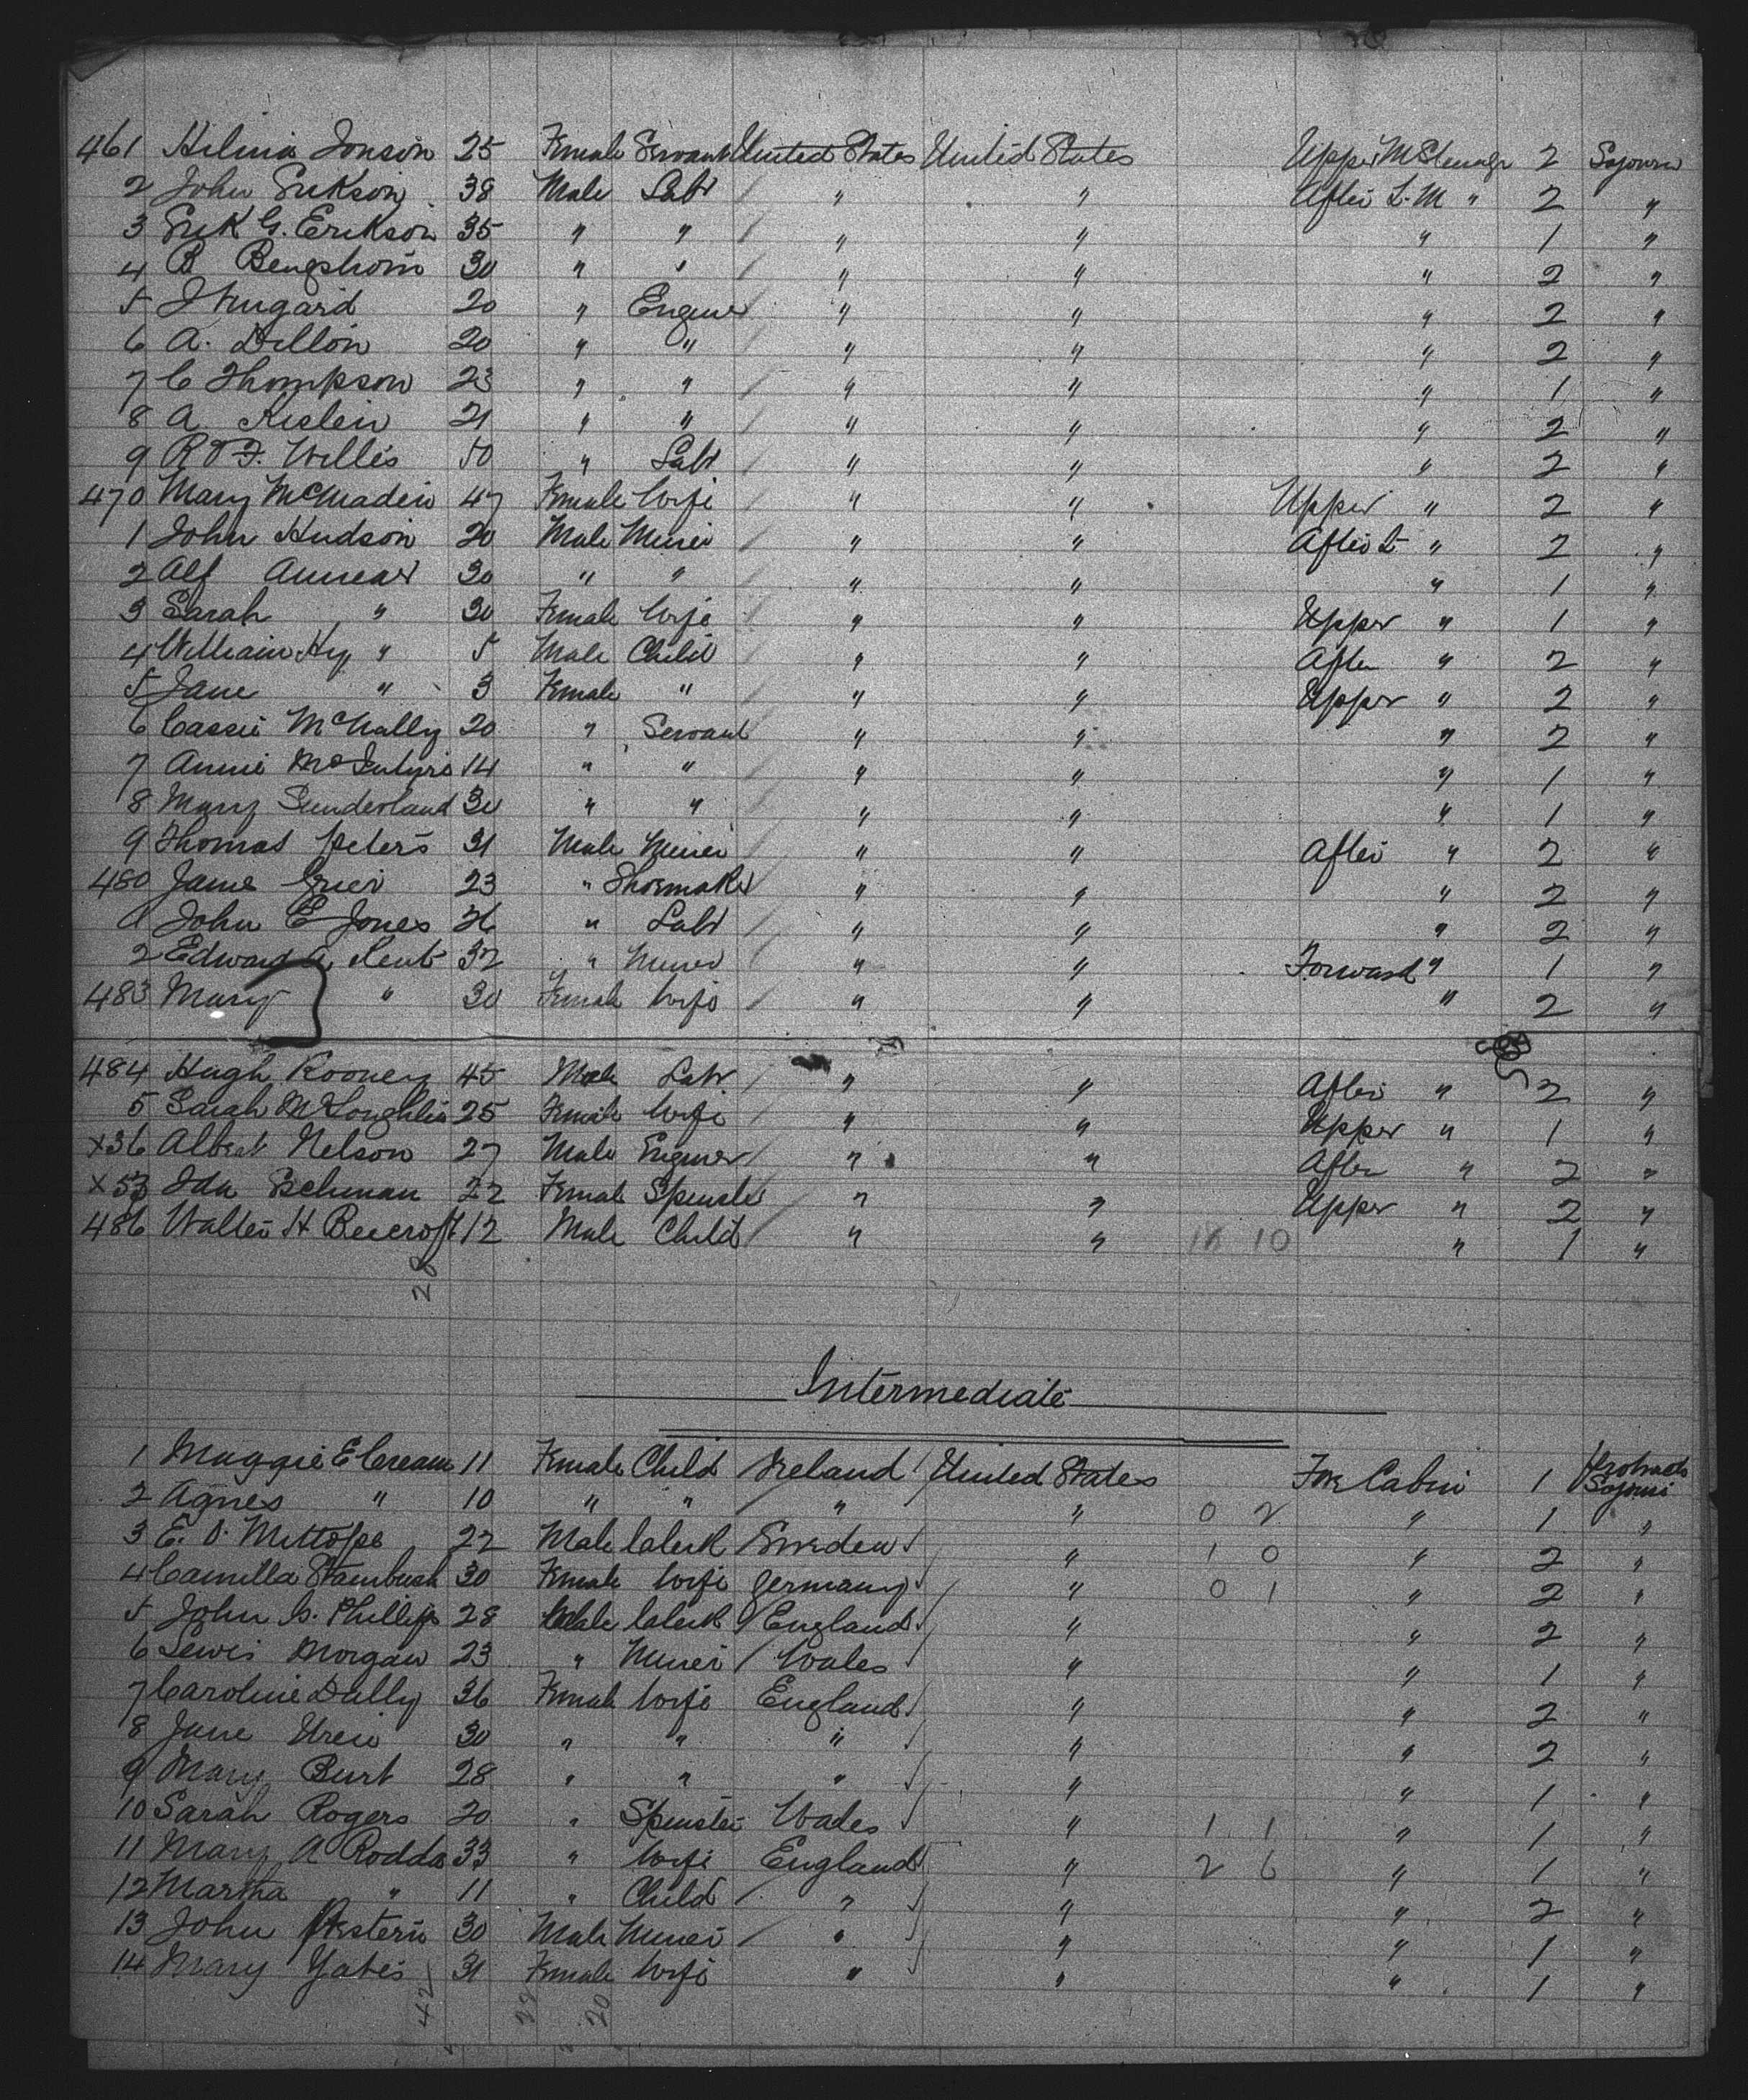 461 Hilmia Jonson 25 Female Servant United States United States Upper M Steerage 2 Sojourn
2 John Erikson 38 Male Labr " " After L. M " 2 "
3 Erik G. Erikson 35 " " " " " 1 "
4 B 30 " " " " " 2 "
5 20 " Engineer " " " 2 "
6 A. Dillon 20 " " " " " 2 "
7 C Thompson 23 " " " " " 1 "
8 A 21 " " " " " 2 "
9 Willis 50 " Labr " " " 2 "
470 Mary 47 Female Wife " " Upper " 2 "
1 John Hudson 20 Male Miner " " After L " 2 "
2 Alf Annear 30 " " " " " 1 "
3 Sarah " 30 Female Wife " " Upper " 1 "
4 William Hy " 5 Male Child " " After " 2 "
5 Jane " 3 Female " " " Upper " 2 "
6 Cassie McNally 20 " Servant " " " 2 "
7 Annie McIntyre 14 " " " " " 1 "
8 Mary Sunderland 30 " " " " " 1 "
9 Thomas Peters 31 Male Miner " " After " 2 "
480 Jame Grier 23 " Shoemaker " " " 2 "
1 John E Jones 26 " Labr " " " 2 "
2 Edward A. Kent 32 " Miner " " Forward " 1 "
483 Mary " 30 Female Wife " " " 2 "
484 Hugh Rooney 45 Male Labr " " After " 2 "
5 Sarah McLoughlin 25 Female Wife " " Upper " 1 "
X36 Albert Nelson 27 Male Engineer " " After " 2 "
X53 Ida 22 Female Spinster " " Upper " 2 "
486 Walter H Beecroft 12 Male Child " " 18 10 " 1 "
28
Intermediate
1 Maggie E Cream 11 Female Child Ireland United States Fore Cabin 1 Protracted Sojourn
2 Agnes " 10 " " " " 0 2 " 1 "
3 E. O. 22 Male Clerk Sweden " 1 0 " 2 "
4 Camilla Stambush 30 Female Wife Germany " 0 1 " 2 "
5 John G. Phillips 28 Male Clerk England " " 2 "
6 Lewis Morgan 23 " Miner Wales " " 1 "
7 Caroline Dally 36 Female Wife England " " 2 "
8 Jane Uren 30 " " " " " 2 "
9 Mary Burt 28 " " " " " 1 "
10 Sarah Rogers 20 " Spinster Wales " 1 1 " 1 "
11 Mary A Rodda 33 " Wife England " 2 6 " 1 "
12 Martha " 11 " Child " " " 2 "
13 John 30 Male Miner " " " 1 "
14 Mary Yates 31 Female Wife " " " 1 "
42 22 20